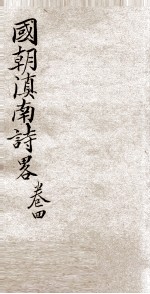 國朝滇南詩畧
卷四